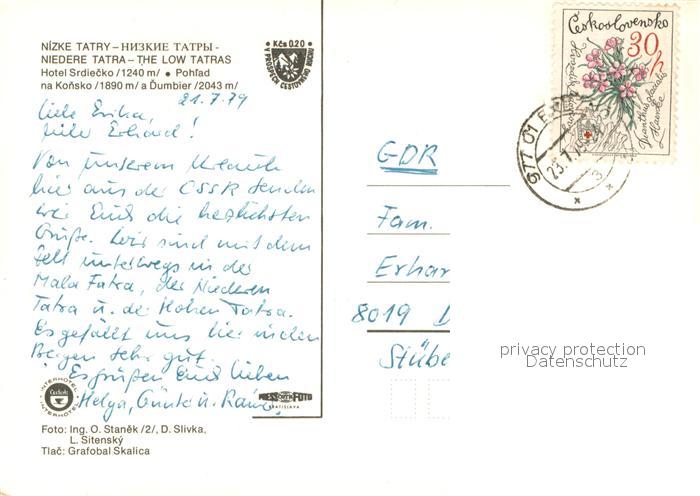 NÍZKE TATRY – НИЗКИЕ ТАТРЫ -
NIEDERE TATRA – THE LOW TATRAS
Hotel Srdiečko /1240 m/ • Pohľad
na Koňsko /1890 m/ a Ďumbier /2043 m/
Kčs 0,20
V PROSPECH CESTOVNÉHO RUCHU
21.7.79
Liebe Erika,
lieber Erhard!
Von unserem Urlaub
hier aus der CSSR senden
wir Euch die herzlichsten
Grüße. Wir sind mit dem
Zelt unterwegs in der
Mala Fatra, der Niederen
Tatra u. der Hohen Tatra.
Es gefällt uns hier in den
Bergen sehr gut.
Es grüßen Euch lieben
Helga, Günter u.
INTERHOTEL
Čedok
INTERHOTEL
PRESSFOTO
BRATISLAVA
Foto: Ing. O. Staněk /2/, D. Slivka,
L. Sitenský
Tlač: Grafobal Skalica
Československo
30 h
Dianthus glacialis
Haenke
977 01
23.7.79
GDR
Fam.
Erhar
8019 D
Stübe
privacy protection
Datenschutz